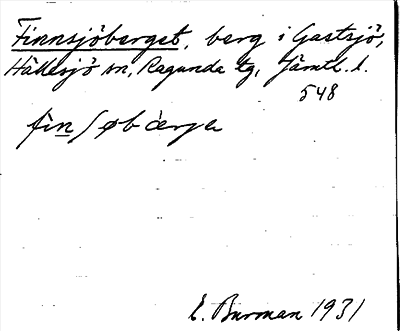 Finnsjöberget, berg i Gastsjö,
Hällesjö sn, Ragunda tg, Jämtl. l.
548
fin ʃøbærje
E. Burman 1931